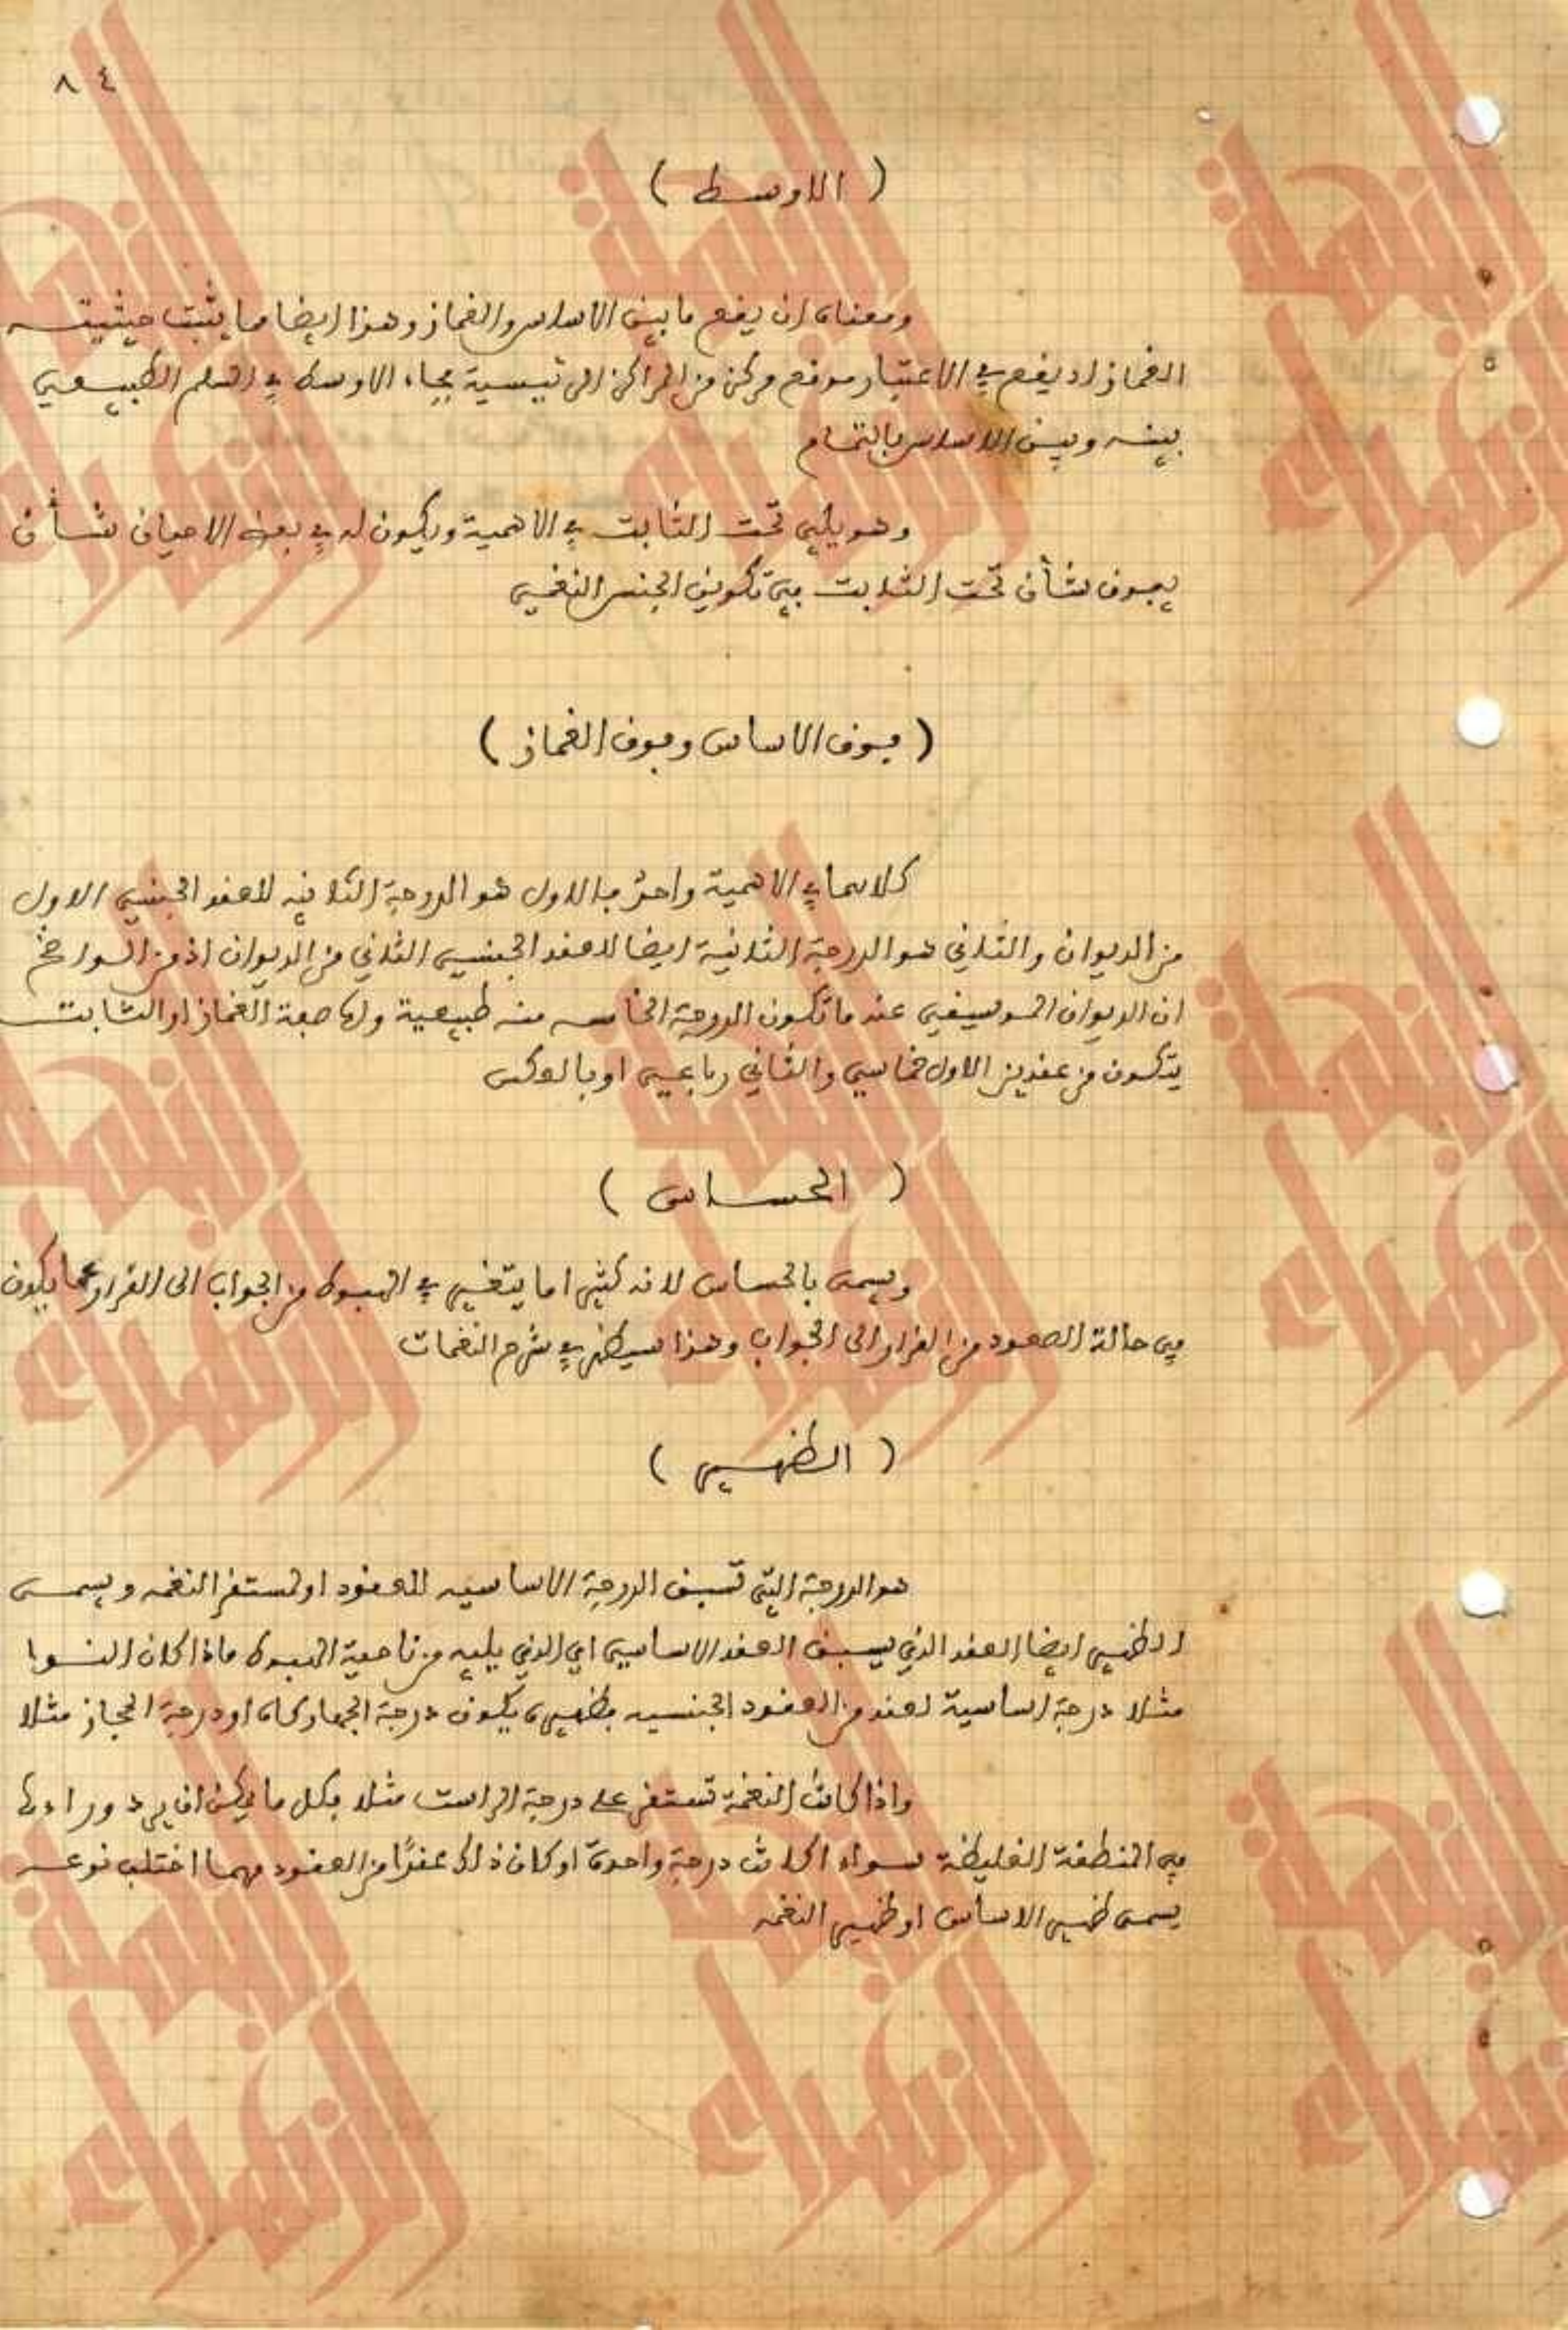 ٨٤
( الاوسط )
ومعناه ان يقع ما بين الاساس والغماز وهذا ايضا مما يثبت حيثيته
الغماز اذ يقع في الاعتبار موقع مركز من المراكز الرئيسية فجاء الاوسط في السلم الطبيعي
بينه وبين الاساس بالتمام
وهو يلي تحت الثابت في الاهمية ويكون له في بعض الاحيان شأن
يفوق شأن تحت الثابت في تكوين الجنس النغمي
( فوق الاساس وفوق الغماز )
كلاهما في الاهمية واحد فالاول هو الدرجة الثانيه للعقد الجنسي الاول
من الديوان والثاني هو الدرجة الثانية ايضا للعقد الجنسي الثاني من الديوان اذ من الواضح
ان الديوان الموسيقي عندما تكون الدرجة الخامسه منه طبيعية ولها صفة الغماز او الثابت
يتكون من عقدين الاول خماسي والثاني رباعي او بالعكس
( الحساس )
ويسمى بالحساس لانه كثيرا ما يتغير في الهبوط من الجواب الى القرار عما يكون
في حالة الصعود من القرار الى الجواب وهذا سيظهر في شرح النغمات
( الظهير )
هو الدرجة التي تسبق الدرجة الاساسيه للعقود او لمستقر النغمه ويسمى
الظهير ايضا العقد الذي يسبق العقد الاساسي اي الذي يليه من ناحية الهبوط فاذا كان النوا
مثلا درجة اساسية لعقد من العقود الجنسيه فظهيره يكون درجة الجهاركاه او درجة الحجاز مثلا
واذا كانت النغمة تستقر على درجة الراست مثلا فكل ما يمكن ان يرد وراءها
في المنطقة الغليظة سواء اكانت درجة واحدة او كان ذلك عقدًا من العقود مهما اختلف نوعه
يسمى ظهير الاساس او ظهير النغمه
النهلة
الزهراء